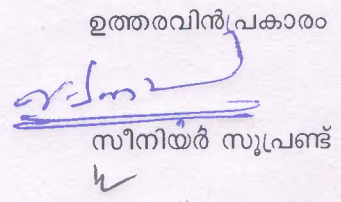 ഉത്തരവിൻപ്രകാരം
സീനിയർ സൂപ്രണ്ട്